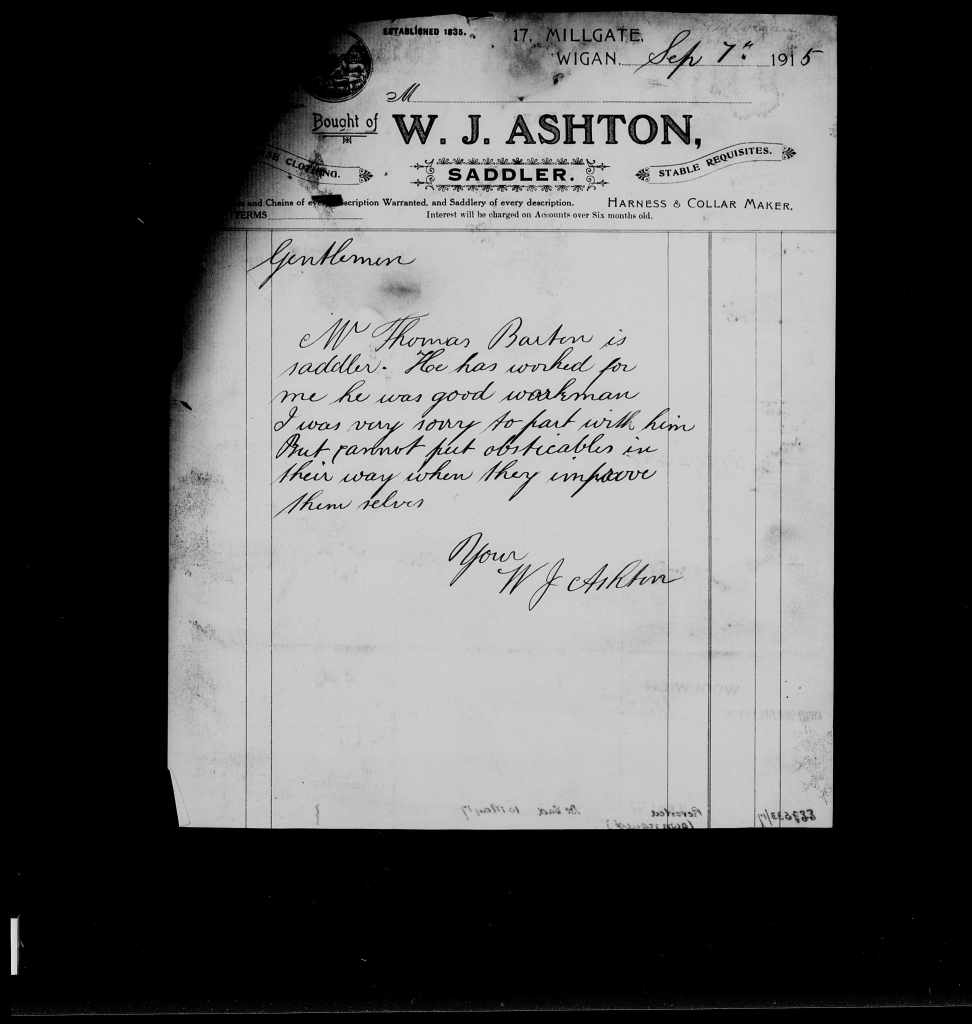 ESTABLISHED 1835.
17, MILLGATE,
WIGAN, Sep 7th 1915
M
Bought of W. J. ASHTON,
CLOTHING.
SADDLER.
STABLE REQUISITES.
and Chains of every description Warranted, and Saddlery of every description. HARNESS & COLLAR MAKER.
TERMS Interest will be charged on Accounts over Six months old.
Gentlemen
Mr Thomas Barton is
saddler. He has worked for
me he was good workman
I was very sorry to part with him
But cannot put obsticables in
their way when they improve
them selves
Your
W J Ashton